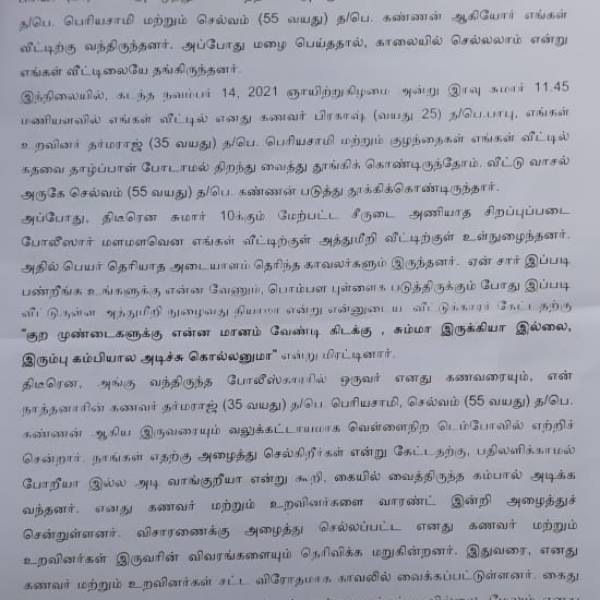 த/பெ. பெரியசாமி மற்றும் செல்வம் (55 வயது) த/பெ. கண்ணன் ஆகியோர் எங்கள்
வீட்டிற்கு வந்திருந்தனர். அப்போது மழை பெய்ததால், காலையில் செல்லலாம் என்று
எங்கள் வீட்டிலையே தங்கிருந்தனர்.
இந்நிலையில், கடந்த நவம்பர் 14, 2021 ஞாயிற்றுகிழமை அன்று இரவு சுமார் 11.45
மணியளவில் எங்கள் வீட்டில் எனது கணவர் பிரகாஷ் (வயது 25) த/பெ.பாபு, எங்கள்
உறவினர் தர்மராஜ் (35 வயது) த/பெ. பெரியசாமி மற்றும் குழந்தைகள் எங்கள் வீட்டில்
கதவை தாழ்ப்பாள் போடாமல் திறந்து வைத்து தூங்கிக் கொண்டிருந்தோம். வீட்டு வாசல்
அருகே செல்வம் (55 வயது) த/பெ. கண்ணன் படுத்து தூக்கிக்கொண்டிருந்தார்.
அப்போது, திடீரென சுமார் 10க்கும் மேற்பட்ட சீருடை அணியாத சிறப்புப்படை
போலீஸார் மளமளவென எங்கள் வீட்டிற்குள் அத்துமீறி வீட்டிற்குள் உள்நுழைந்தனர்.
அதில் பெயர் தெரியாத அடையாளம் தெரிந்த காவலர்களும் இருந்தனர். ஏன் சார் இப்படி
பண்றீங்க உங்களுக்கு என்ன வேணும், பொம்பள புள்ளைக படுத்திருக்கும் போது இப்படி
வீட்டுக்குள்ள அத்துமீறி நுழைவது நியாமா என்று என்னுடைய வீட்டுக்காரர் கேட்டதற்கு
"குற முண்டைகளுக்கு என்ன மானம் வேண்டி கிடக்கு , சும்மா இருக்கியா இல்லை,
இரும்பு கம்பியால அடிச்சு கொல்லனுமா" என்று மிரட்டினார்.
திடீரென, அங்கு வந்திருந்த போலீஸ்காரரில் ஒருவர் எனது கணவரையும், என்
நாத்தனாரின் கணவர் தர்மராஜ் (35 வயது) த/பெ. பெரியசாமி, செல்வம் (55 வயது) த/பெ.
கண்ணன் ஆகிய இருவரையும் வலுக்கட்டாயமாக வெள்ளைநிற டெம்போவில் ஏற்றிச்
சென்றார். நாங்கள் எதற்கு அழைத்து செல்கிறீர்கள் என்று கேட்டதற்கு, பதிலளிக்காமல்
போறீயா இல்ல அடி வாங்குறீயா என்று கூறி, கையில் வைத்திருந்த கம்பால் அடிக்க
வந்தனர். எனது கணவர் மற்றும் உறவினர்களை வாரண்ட் இன்றி அழைத்துச்
சென்றுள்ளனர். விசாரணைக்கு அழைத்து செல்லப்பட்ட எனது கணவர் மற்றும்
உறவினர்கள் இருவரின் விவரங்களையும் தெரிவிக்க மறுகின்றனர். இதுவரை, எனது
கணவர் மற்றும் உறவினர்கள் சட்ட விரோதமாக காவலில் வைக்கப்பட்டுள்ளனர். கைது